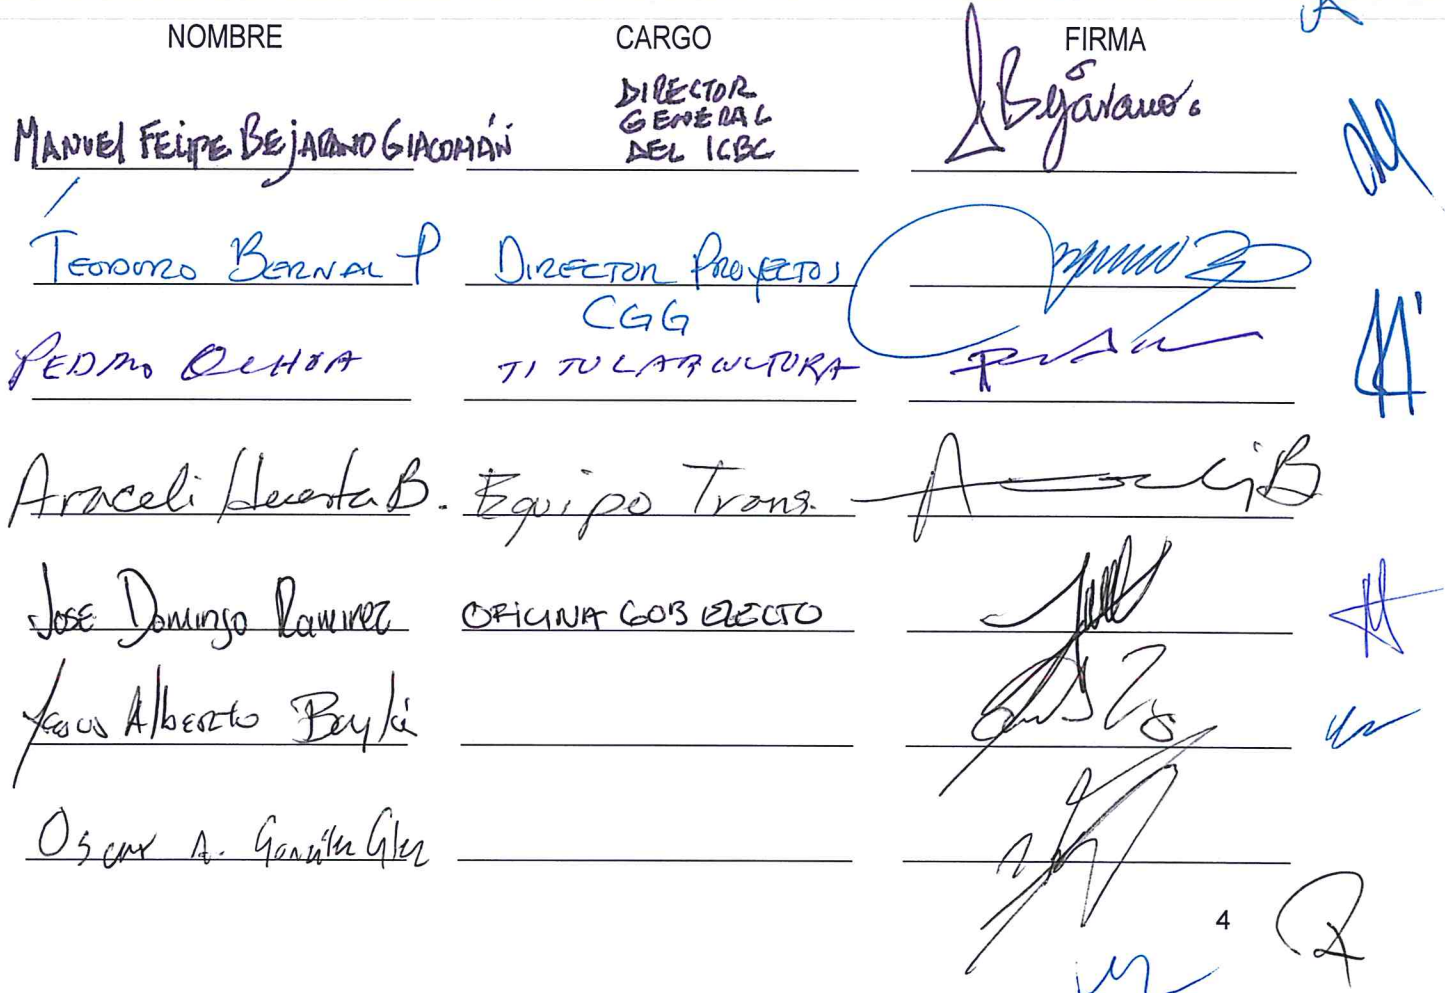 NOMBRE CARGO FIRMA
MANUEL FELIPE BEJARANO GIACOMÁN DIRECTOR
GENERAL
DEL ICBC
Bejarano
TEODORO BERNAL P DIRECTOR PROYECTOS
CGG
PEDRO OCHOA TITULAR CULTURA
Araceli Huerta B. Equipo Trans.
JOSE Domingo Ramirez OFICINA GOB ELECTO
Alberto
Oscar A. González Glez
4